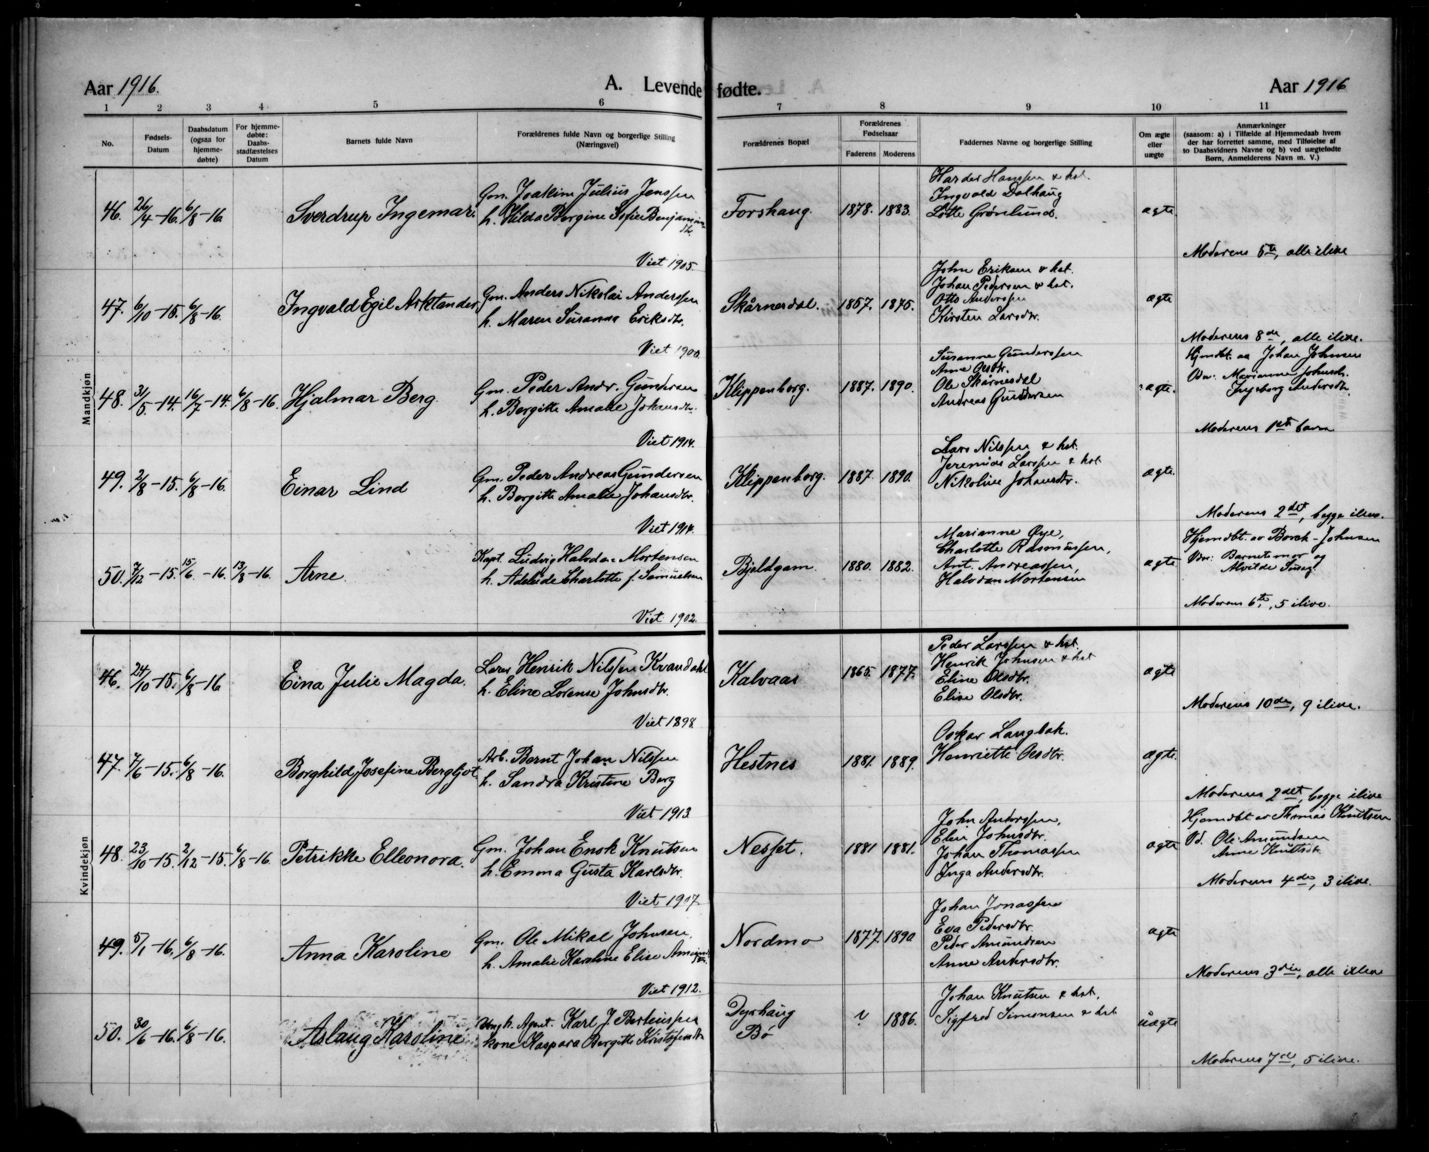 Aar 1916. A. Levende fødte. Aar 1916
1 2 3 4 5 6 7 8 9 10 11
No.
Fødsels-
Datum
Daabsdatum
(ogsaa for
hjemme-
døbte)
For hjemme-
døbte:
Daabs-
stadfæstelses
Datum
Barnets fulde Navn
Forældrenes fulde Navn og borgerlige Stilling
(Næringsvei)
Forældrenes Bopæl
Forældrenes
Fødselsaar
Faderens Moderens
Faddernes Navne og borgerlige Stilling
Om ægte
eller
uægte
Anmærkninger
(saasom: a) i Tilfælde af Hjemmedaab hvem
der har forrettet samme, med Tilføielse af
to Daabsvidners Navne og b) ved uægtefødte
Børn, Anmelderens Navn m. V.)
Mandkjøn
46. 26/4-16. 6/8-16 Sverdrup Ingemar
Gm. Joakim Julius Jenssen
h. Hilda Bergine Sofie Benjamins
dtr.
Viet 1905.
Forshaug 1878. 1883.
Harder Hanssen & hst.
Ingvald Dalhaug
Lotte Grønlund.
ægte
Moderens 5te, alle ilive
47. 6/10-15. 6/8-16. Ingvald Egil Arktander
Gm. Anders Nikolai Anderssen
h. Maren Susanna Eriksdtr.
Viet 1900.
Skårnesdal. 1867. 1875.
John Eriksen & hst.
Johan Pedersen & hst.
Otto Anderssen
Kirsten Larsdtr.
ægte
Moderens 8de, alle ilive.
48. 3/5-14. 16/7-14. 6/8-16. Hjalmar Berg
Gm. Peder Andr. Gundersen
h. Bergitte Amalie Johansdtr.
Viet 1914.
Klippenborg. 1887. 1890.
Susanne Gunderssen
Anna Olsdtr.
Ole Skårnesdal
Andreas Gundersen
ægte.
Hjmdbt. av Johan Johnsen
Vdn. Marianne Johnsdtr.
Ingeborg Andersdtr.
Moderens 1ste barn
49. 2/8-15. 6/8-16. Einar Lind
Gm. Peder Andreas Gundersen
h. Bergitte Amalie Johansdtr.
Viet 1914.
Klippenborg. 1887 1890.
Lars Nilssen & hst.
Jeremias Larssen & hst.
Nikoline Johansdtr.
ægte
Moderens 2det, begge ilive.
50. 7/12-15. 15/6-16. 13/8-16. Arne.
Kapt. Ludvig Halvdan Mortensen
h. Adelaide Charlotte f. Samuelsen
Viet 1902.
Bjeldgam 1880. 1882.
Marianne Øye,
Charlotte Rasmussen,
Ant. Andreassen,
Halvdan Mortensen
ægte
Hjemdbt av Johnsen
Vdn. Barnets mor og
Moderens 6te, 5 ilive.
Kvindekjøn
46. 24/10-15. 6/8-16 Eina Julie Magda.
Lærer Henrik Nilssen Kvandahl
h. Eline Lorense Johnsdtr.
Viet 1898
Kalvaas 1865. 1877.
Peder Larssen & hst.
Henrik Johnsen & hst
Eline Olsdtr.
Elise Olsdtr.
ægte
Moderens 10de, 9 ilive.
47. 7/6-15. 6/8-16. Borghild Josefine Bergljot
Arb. Bernt Johan Nilssen
h. Sandra Kristine Berg
Viet 1913.
Hestnes 1881 1889.
Oskar Langbak.
Henriette Olsdtr.
ægte
Moderens 2det, begge ilive
48. 23/10-15. 2/12-15. 6/8-16. Petrikke Elleonora.
Gm. Johan Enok Knutsen
h. Emma Gusta Karlsdtr.
Viet 1907.
Nesset. 1881 1881.
John Anderssen,
Elen Johnsdtr.
Johan Thomassen
Inga Andersdtr.
ægte
Hjemdbt av Thomas Knutsen
Vd. Ole Amundsen
Anne Knutsdtr
Moderens 4de, 3 ilive.
49. 5/1-16. 6/8-16. Anna Karoline
Gm. Ole Mikal Johnsen,
h. Amalie Karoline Elise
Viet 1912.
Nordmo 1877. 1890
Johan Jonassen
Eva Pedersdtr.
Peder Amundsen
Anne Andersdtr.
ægte
Moderens 3die, alle ilive
50. 30/6-16. 6/8-16. Aslaug Karoline
Ungk. Agnt. Karl J. Berteussen
kone Kaspara Bergitte Kristofersdtr
Dyrhaug
Bø
1886.
Johan Knutsen & hst.
Sigfred Simonsen & hst
uægte
Moderens 7de, 5 ilive.